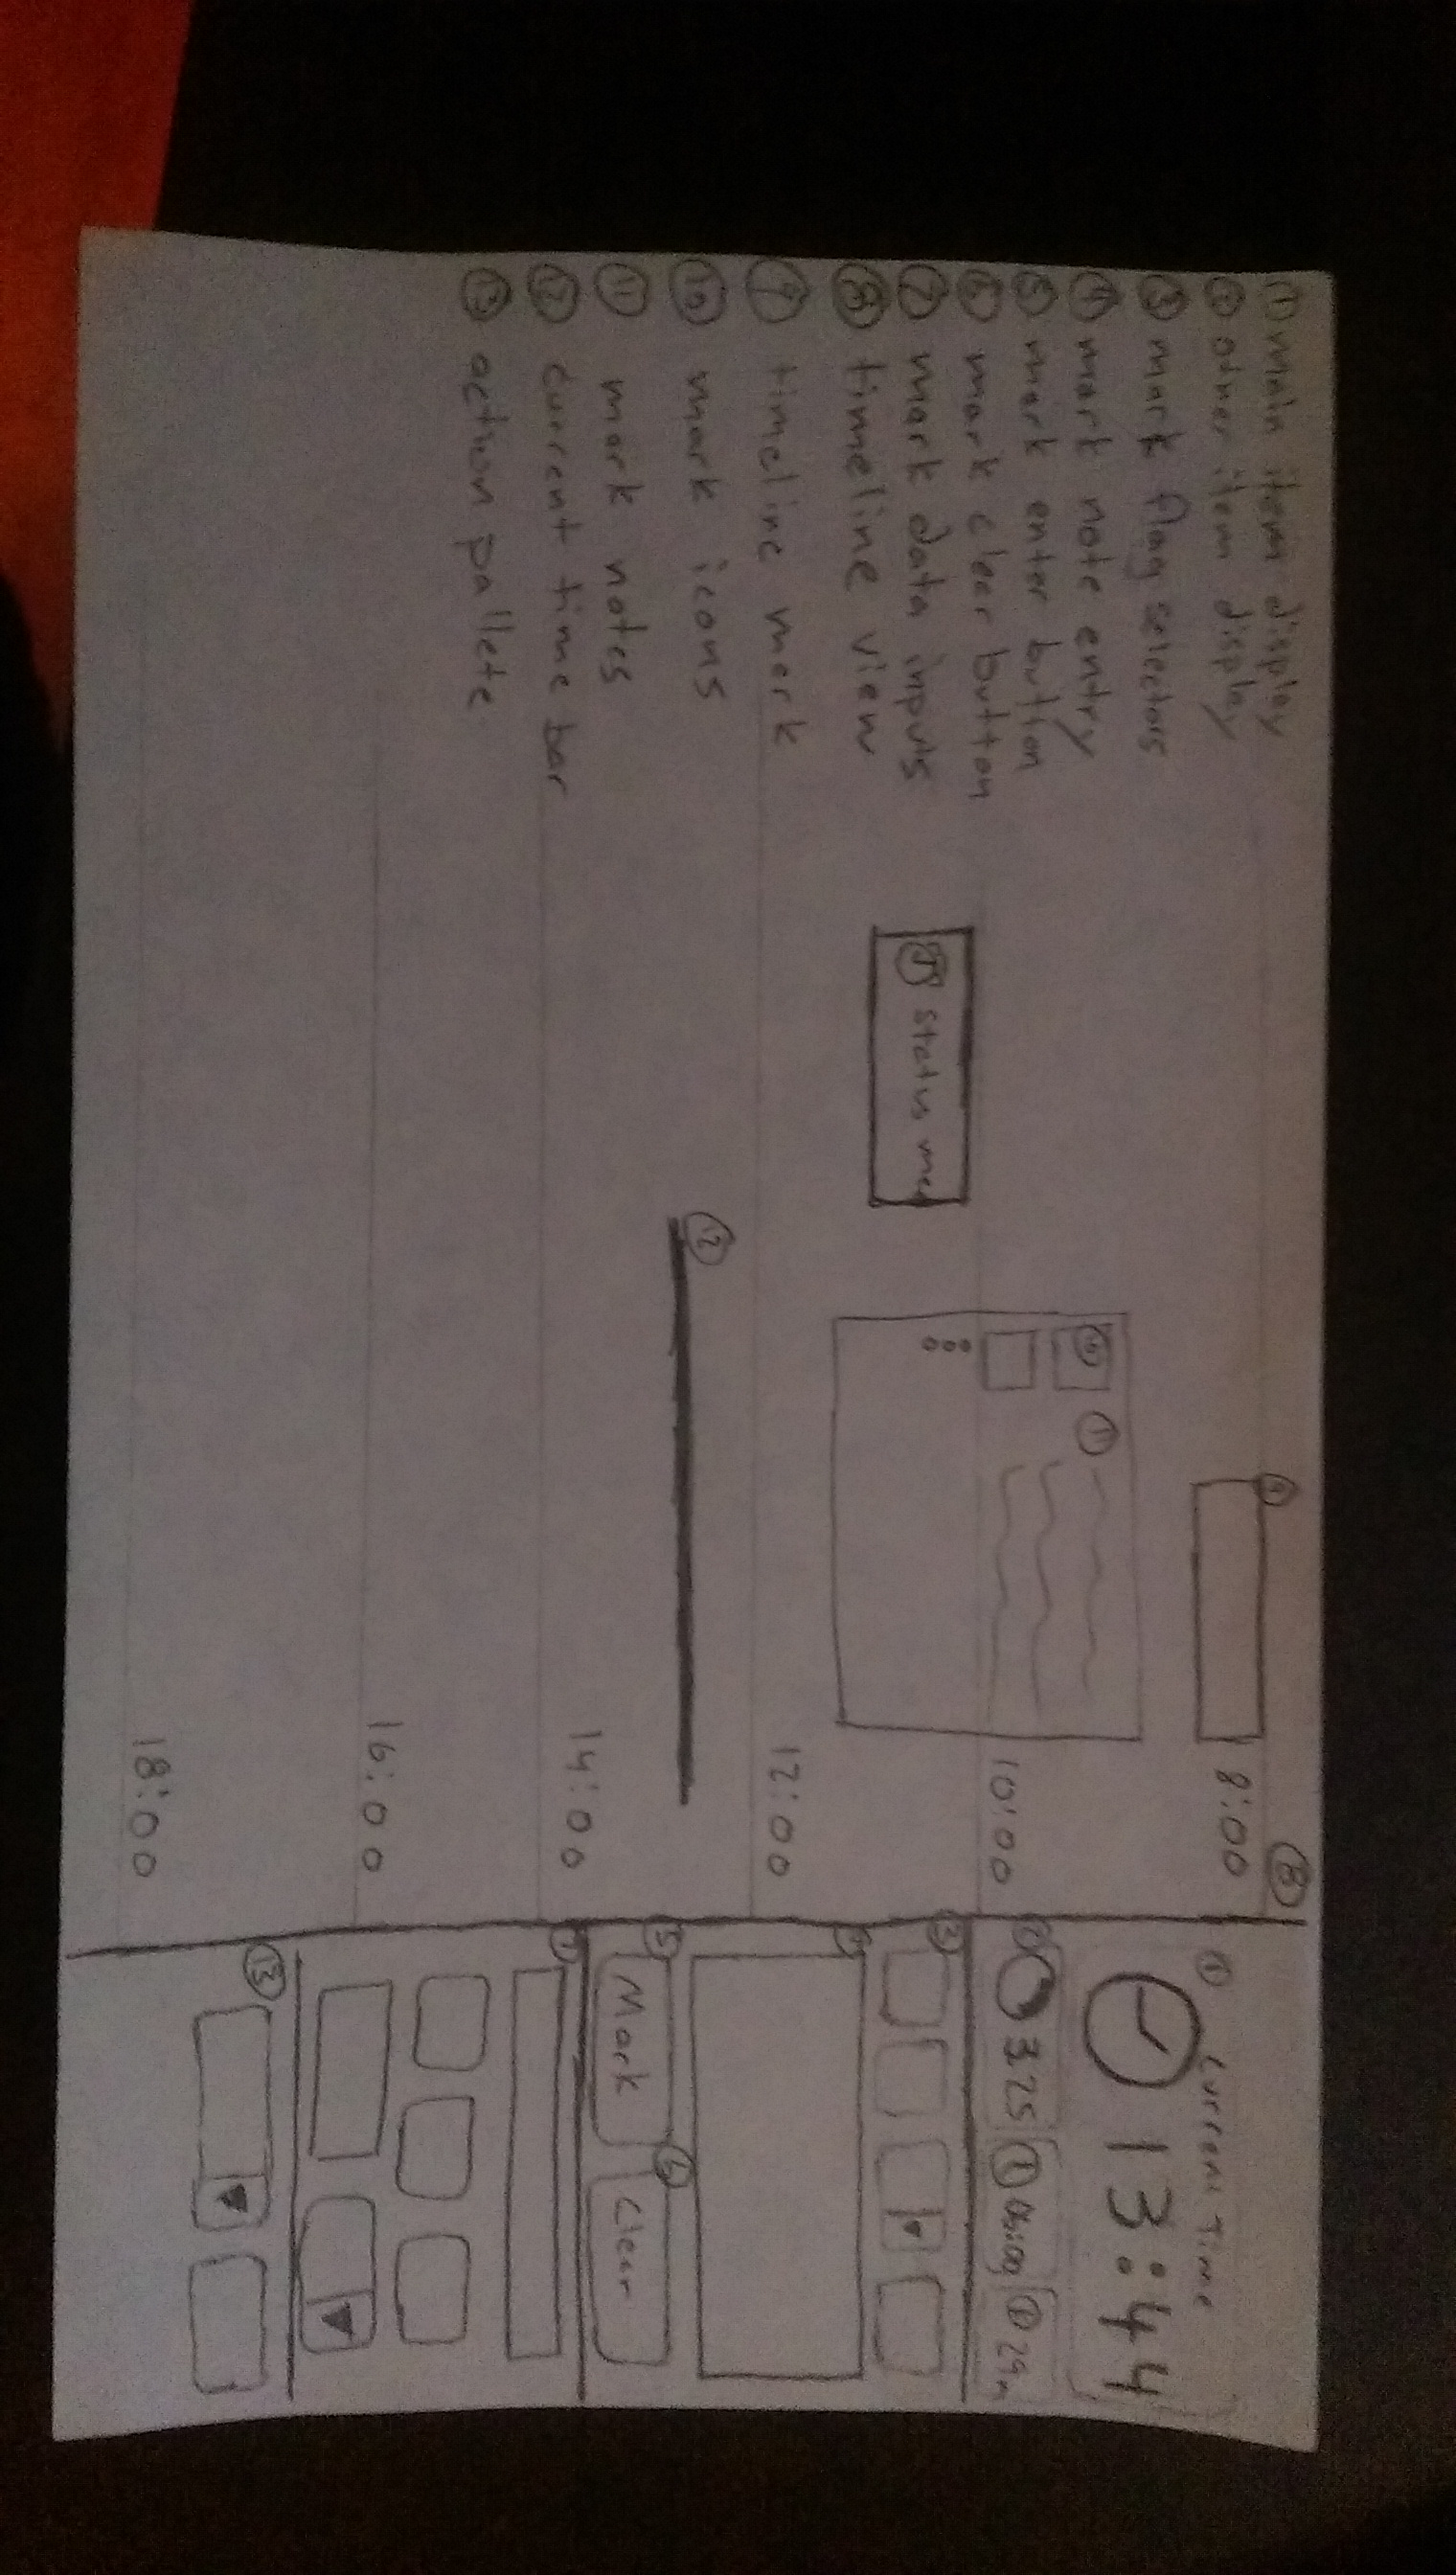 ① main item display
② other item display
③ mark flag selectors
④ mark note entry
⑤ mark enter button
⑥ mark clear button
⑦ mark data inputs
⑧ timeline view
⑨ timeline mark
⑩ mark icons
⑪ mark notes
⑫ current time bar
⑬ action pallete
status me
⑩ ⑪
⑫
⑨
8:00
10:00
12:00
14:00
16:00
18:00
⑧
① Current Time
13:44
② 3.25 06:00 29
③
④
⑤ Mark ⑥ Clear
⑦
⑬